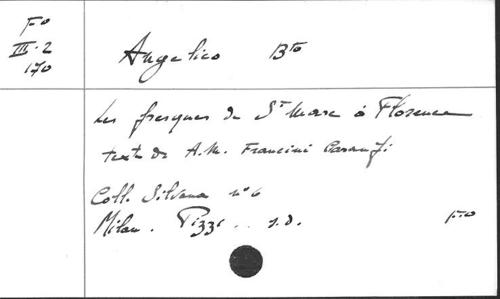 Fo
III.2
170
Angelico Bto
Les fresques de St Marc à Florence
texte de A.M. Francini
Coll. Silvana n° 6
Milan. Pizzi.. s.d. Fo